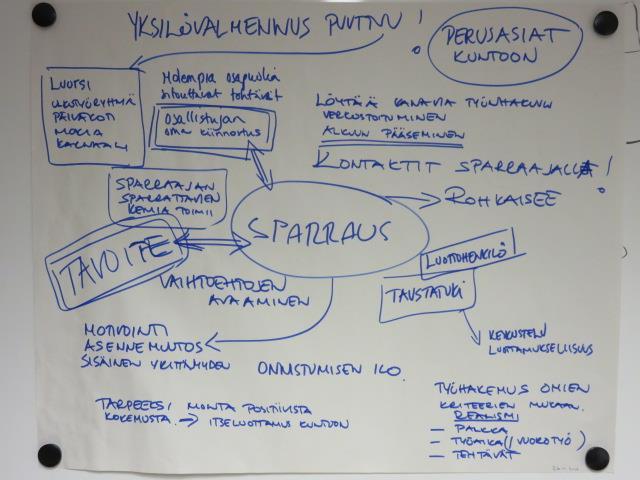 YKSILÖVALMENNUS PUUTTUU!
PERUSASIAT
KUNTOON
LUOTSI
PÄIVÄKOTI
Molempia osapuolia
sitouttavat tehtävät
Osallistujan
oma kiinnostus
LÖYTÄÄ KANAVIA TYÖNHAKUUN
VERKOSTOITUMINEN
ALKUUN PÄÄSEMINEN
KONTAKTIT SPARRAAJALLA!
ROHKAISEE
SPARRAAJAN
SPARRATTAVIEN
KEMIA TOIMII
SPARRAUS
TAVOITE
LUOTTOHENKILÖ
TAUSTATUKI
VAIHTOEHTOJEN
AVAAMINEN
KESKUSTELU
LUOTTAMUKSELLISUUS
MOTIVOINTI
ASENNEMUUTOS
SISÄINEN YRITTÄJYYDEN
ONNISTUMISEN ILO.
TARPEEKSI MONTA POSITIIVISTA
KOKEMUSTA → ITSELUOTTAMUS KUNTOON
TYÖHAKEMUS OMIEN
KRITEERIEN MUKAAN.
REALISMI
– PALKKA
– TYÖAIKA (/VUOROTYÖ)
– TEHTÄVÄT